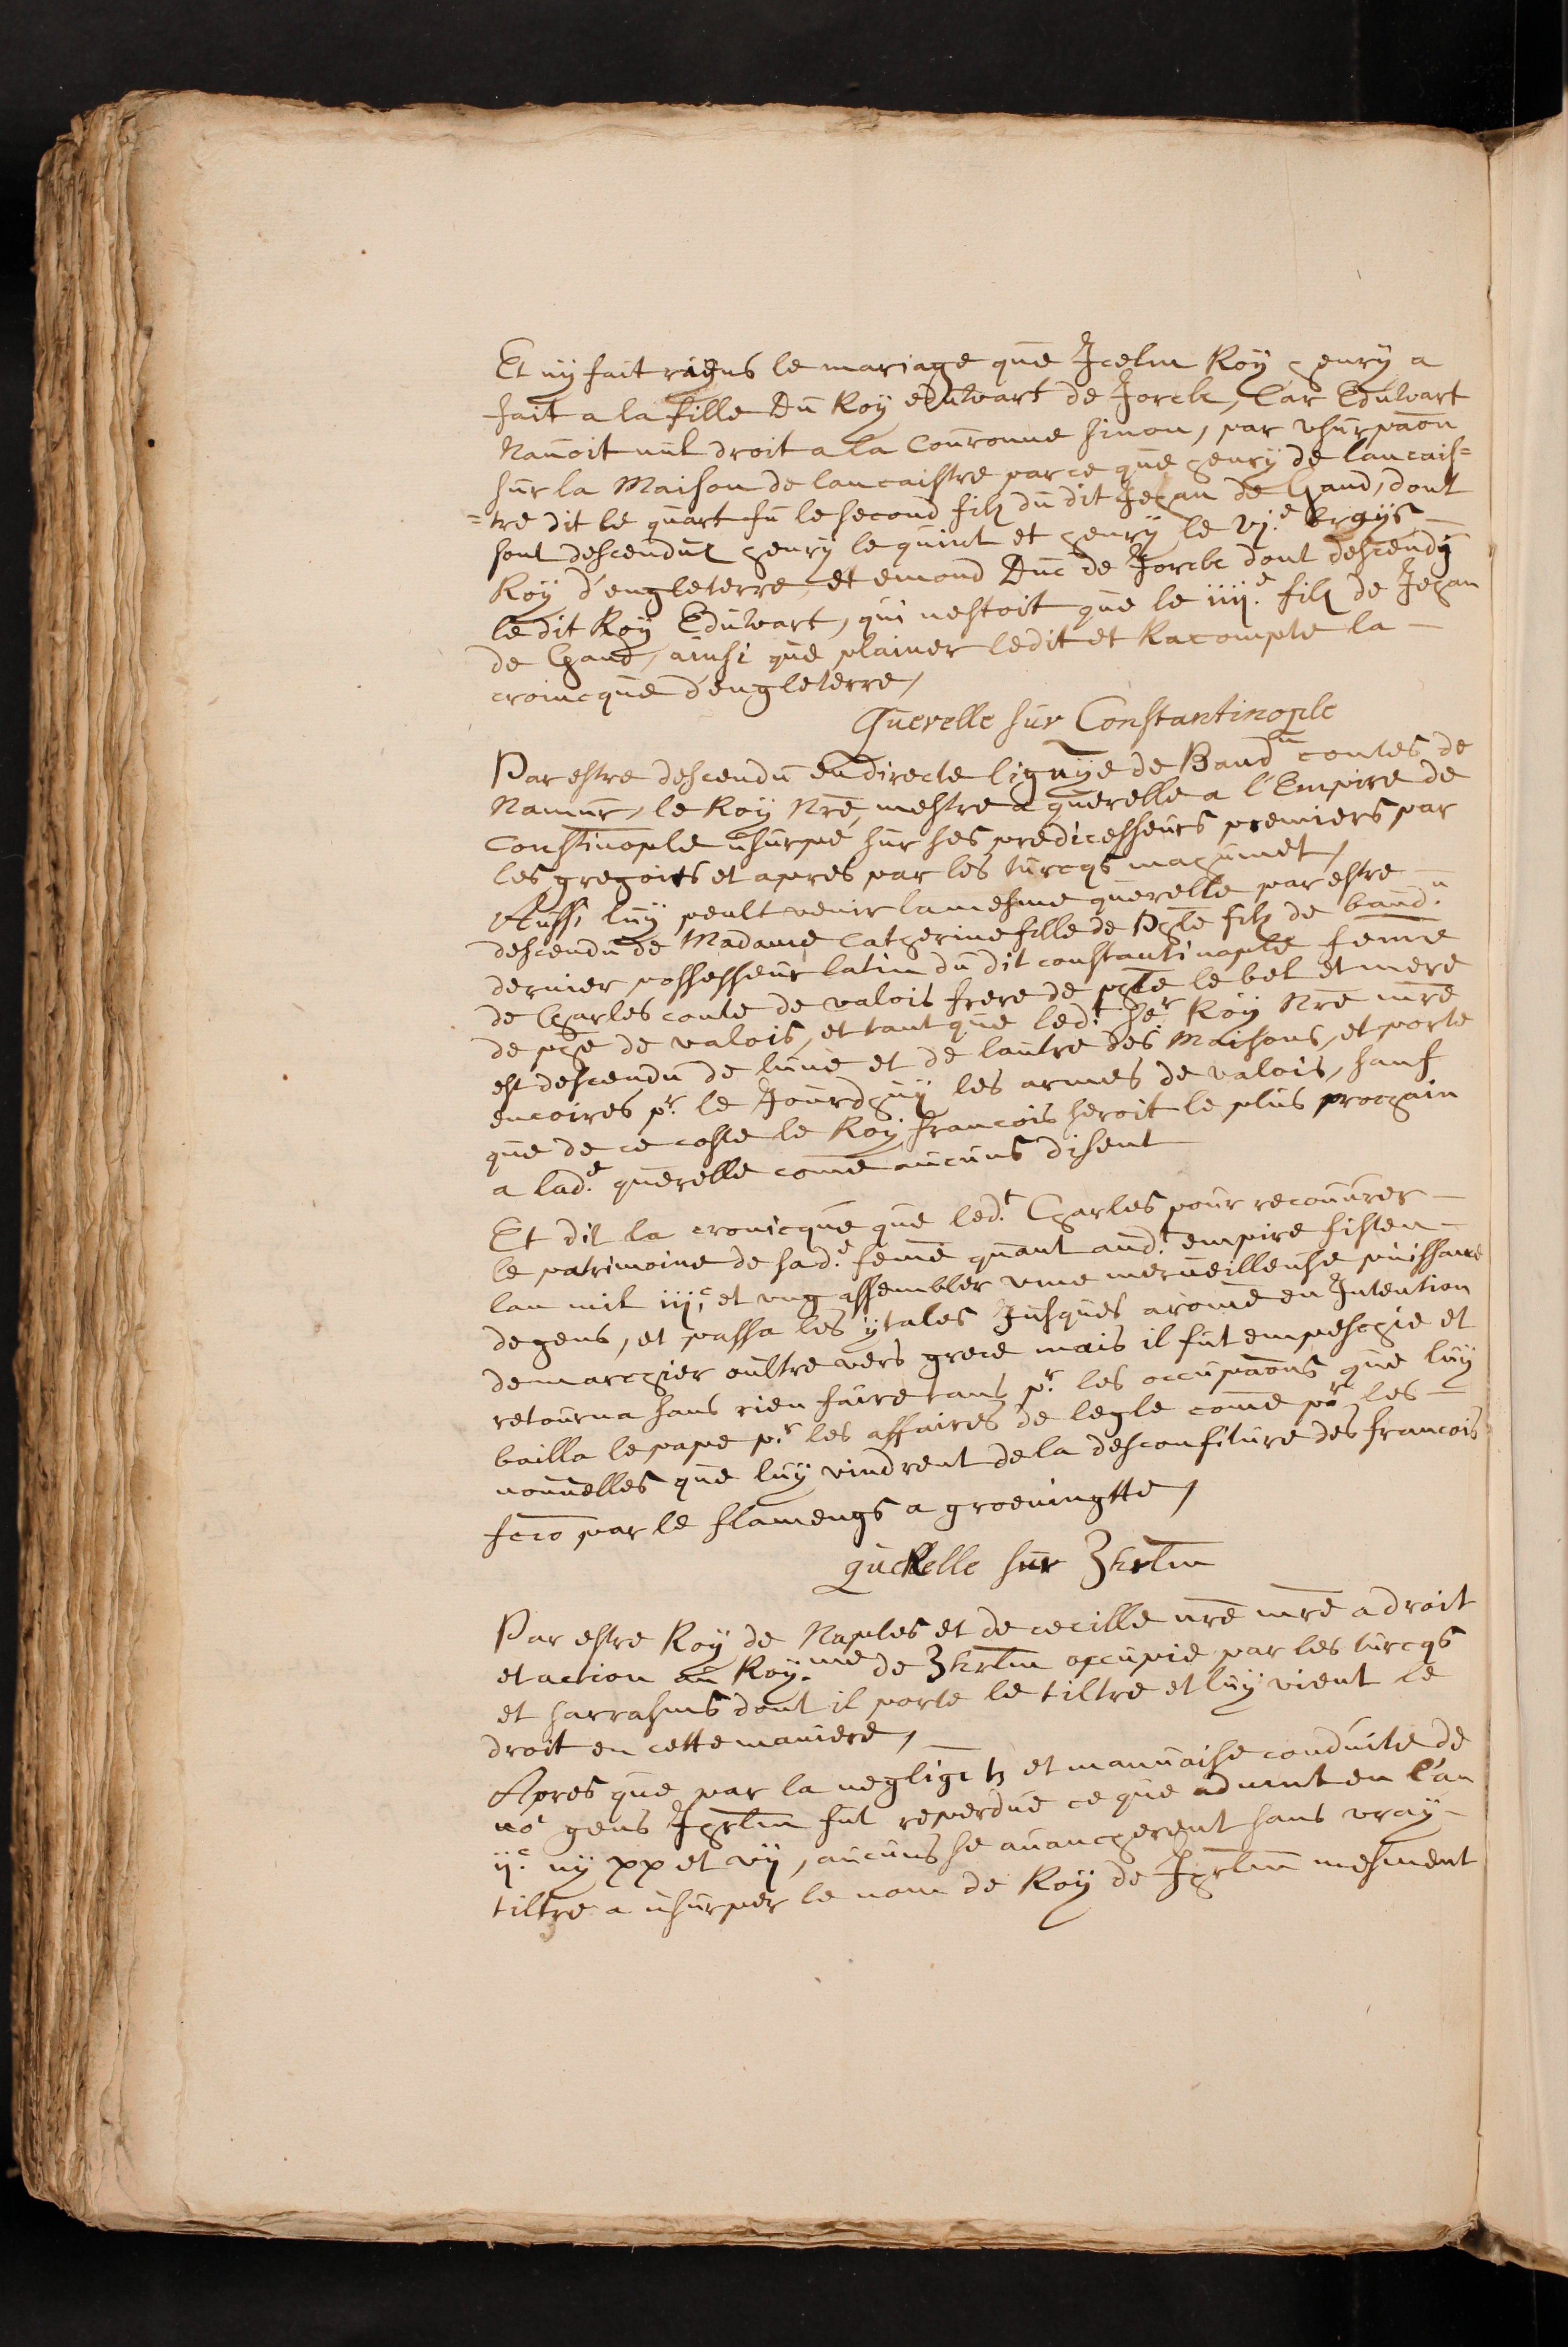 Et ny fait riens le mariage que Icelui Roy henry a
fait a la fille du Roy eduwart de Jorck, Car Eduwart
navoit nul droit a la Couronne sinon, par usurpaon
sur la Maison de lancaistre parce que henry de lancais=
=tre dit le quart fu le second filz du dit Jehan de Gand, dont
sont descenduz henry le quint et henry le vj.e
Roy d'engleterre et emond Duc de Jorck dont descendy
le dit Roy Eduwart, qui nestoit que le iiij.e filz de Jehan
de Gand, ainsi que plainer ledit et Racompte la
cronicque d'engleterre,
Querelle sur Constantinople
Par estre descendu en directe lignÿe de Baud.n contes de
Namur, le Roy Nre, mestre a querelle a l'Empire de
Constinople usurpé sur ses predicesseurs premiers par
les gregoits et apres par les turcqs mahumet,
Aussi luy peult venir la mesme querelle par estre
descendu de Madame Catherine fille de Phle filz de baud.n
dernier possesseur latin du dit constantinople feme
de Charles conte de valois frere de phle le bel et mere
de phe de valois, et tant que led.t sr Roy Nre mre
est descendu de lune et de lautre des Maisons, et porte
encoires pr. le Jourdhuy les armes de valois, sauf
que de ce coste le Roy francois seroit le plus prochain
a lad.e querelle come aucuns disent
Et dit la cronicque que led.t Charles pour recouurer
le patrimoine de sad.e feme quant aud.t empire fist en
lan mil iij.c et ung assembler une merueilleuse puissance
de gens, et passa les ytales Jusques a rome en Intention
de marchier oultre vers grece mais il fut empeschie et
retourna sans rien faire tans pr. les occupaons que luy
bailla le pape pr. les affaires de legle come pr les
nouuelles que luy vindrent de la desconfiture des francois
par le flamengs a groeningtte,
querelle sur Ihrlm
Par estre Roy de Naples et de cecille nre mre a droit
et action au Roy.me de Ihrlm occupie par les turcqs
et sarrasins dont il porte le tiltre et luy vient le
droit en cette maniere,
Apres que par la negligetz et mauuaise conduite de
nos gens Ihrlm fut reperdue ce que advint en l'an
xx et vij, aucuns se auancherent sans vray
tiltre a usurper le nom de Roy de Ihrlm mesment